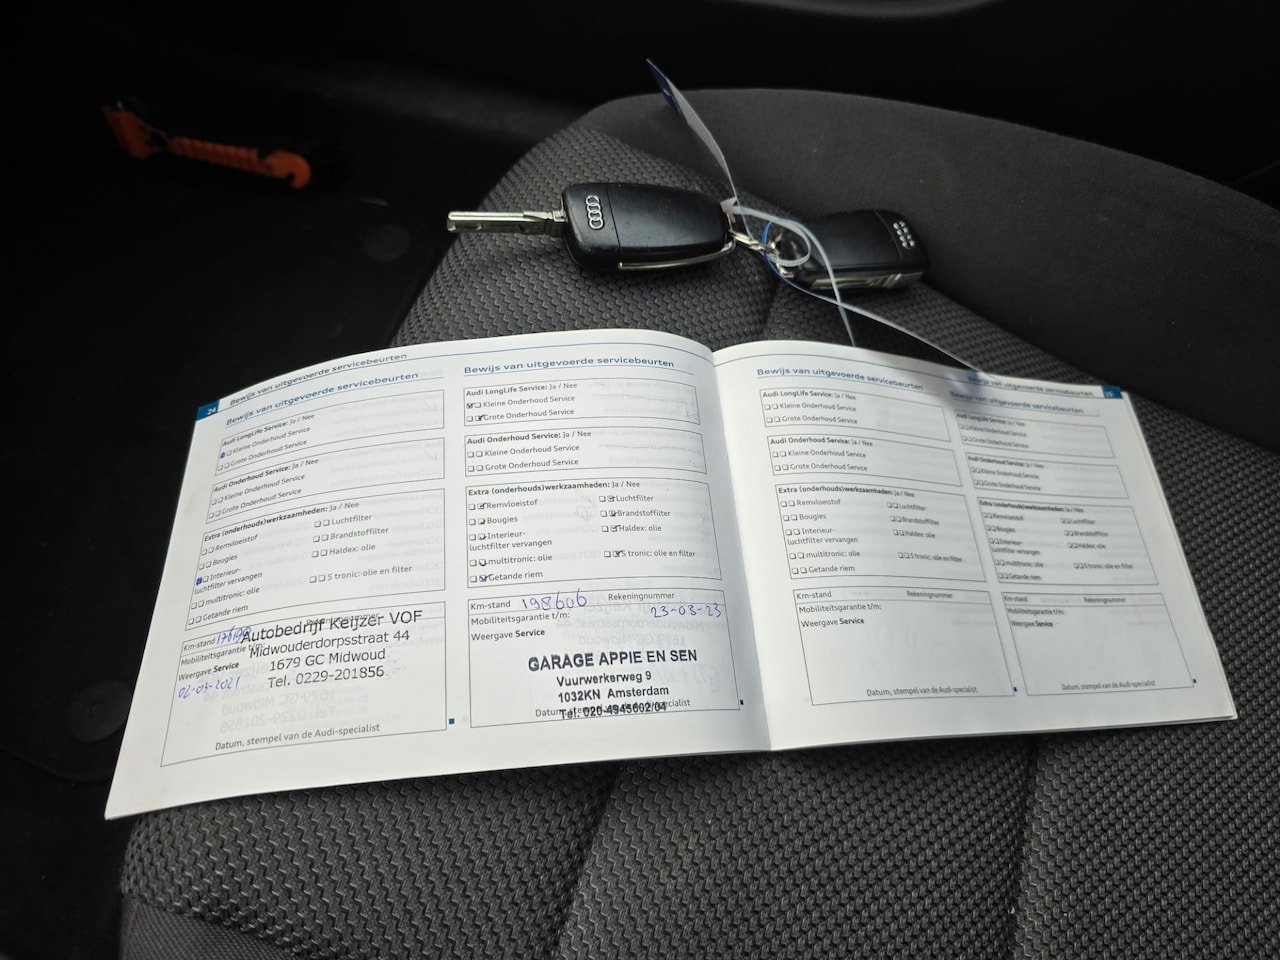 24
Bewijs van uitgevoerde servicebeurten
Bewijs van uitgevoerde servicebeurten
Audi LongLife Service: Ja / Nee
Kleine Onderhoud Service
Grote Onderhoud Service
Audi Onderhoud Service: Ja / Nee
Kleine Onderhoud Service
Grote Onderhoud Service
Extra (onderhouds)werkzaamheden: Ja / Nee
Remvloeistof
Luchtfilter
Bougies
Brandstoffilter
Interieur-
luchtfilter vervangen
Haldex: olie
multitronic: olie
S tronic: olie en filter
Getande riem
Km-stand
Mobiliteitsgarantie t/m:
Weergave Service
02-03-2021
Autobedrijf Keijzer VOF
Midwouderdorpsstraat 44
1679 GC Midwoud
Tel. 0229-201856
Datum, stempel van de Audi-specialist
Bewijs van uitgevoerde servicebeurten
Audi LongLife Service: Ja / Nee
Kleine Onderhoud Service
Grote Onderhoud Service
Audi Onderhoud Service: Ja / Nee
Kleine Onderhoud Service
Grote Onderhoud Service
Extra (onderhouds)werkzaamheden: Ja / Nee
Remvloeistof
Luchtfilter
Bougies
Brandstoffilter
Interieur-
luchtfilter vervangen
Haldex: olie
multitronic: olie
S tronic: olie en filter
Getande riem
Km-stand 198606 Rekeningnummer
Mobiliteitsgarantie t/m: 23-03-23
Weergave Service
GARAGE APPIE EN SEN
Vuurwerkerweg 9
1032KN Amsterdam
Tel: 020-4945602/04
Datum, stempel van de Audi-specialist
Bewijs van uitgevoerde servicebeurten
Audi LongLife Service: Ja / Nee
Kleine Onderhoud Service
Grote Onderhoud Service
Audi Onderhoud Service: Ja / Nee
Kleine Onderhoud Service
Grote Onderhoud Service
Extra (onderhouds)werkzaamheden: Ja / Nee
Remvloeistof
Luchtfilter
Bougies
Brandstoffilter
Interieur-
luchtfilter vervangen
Haldex: olie
multitronic: olie
S tronic: olie en filter
Getande riem
Km-stand Rekeningnummer
Mobiliteitsgarantie t/m:
Weergave Service
Datum, stempel van de Audi-specialist
Bewijs van uitgevoerde servicebeurten
25
Bewijs van uitgevoerde servicebeurten
Audi LongLife Service: Ja / Nee
Kleine Onderhoud Service
Grote Onderhoud Service
Audi Onderhoud Service: Ja / Nee
Kleine Onderhoud Service
Grote Onderhoud Service
Extra (onderhouds)werkzaamheden: Ja / Nee
Remvloeistof
Luchtfilter
Bougies
Brandstoffilter
Interieur-
luchtfilter vervangen
Haldex: olie
multitronic: olie
S tronic: olie en filter
Getande riem
Km-stand Rekeningnummer
Mobiliteitsgarantie t/m:
Weergave Service
Datum, stempel van de Audi-specialist